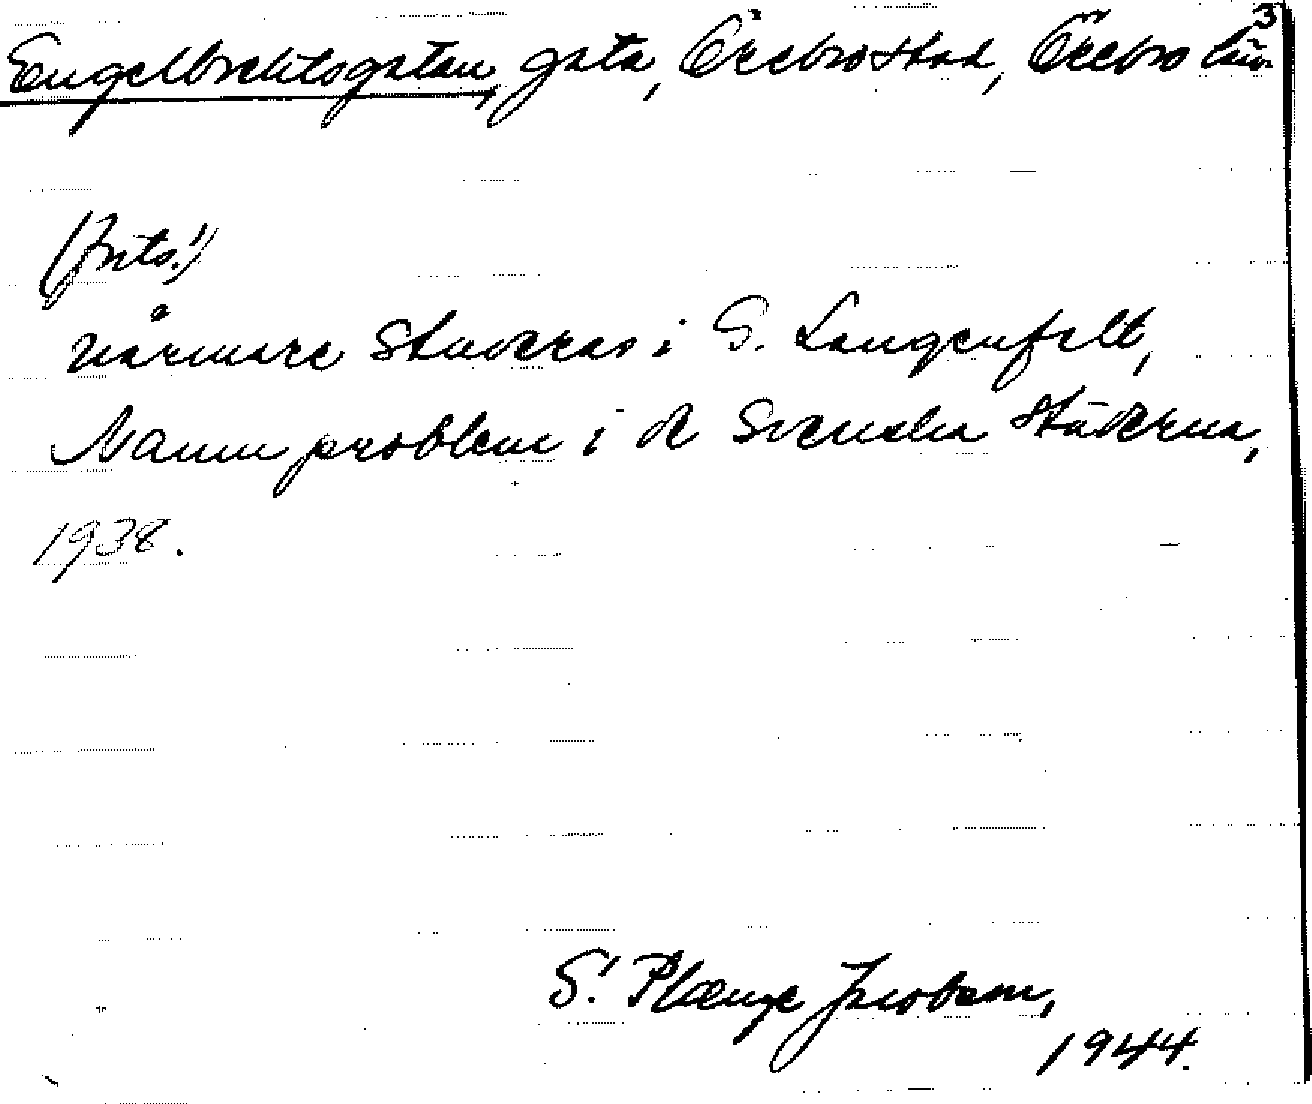 3
Engelbrektsgatan, gata, Örebro stad, Örebro län.
(forts.)
närmare studeras i G. Langenfelt,
Namnproblem i de svenska städerna,
1938.
S. Plænge Jacobson,
1944.